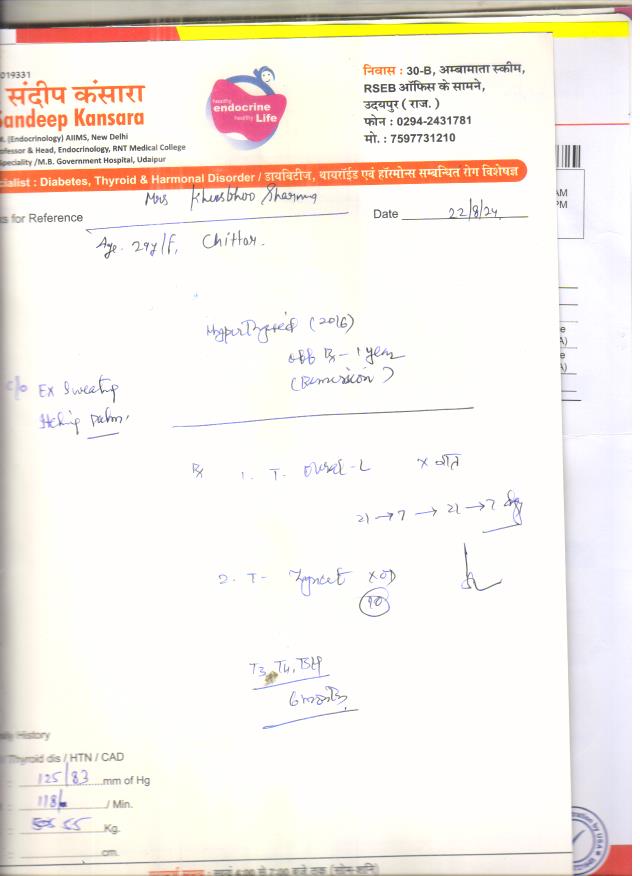 019331
संदीप कंसारा
Sandeep Kansara
(Endocrinology) AIIMS, New Delhi
ofessor & Head, Endocrinology, RNT Medical College
Speciality /M.B. Government Hospital, Udaipur
healthy
endocrine
healthy Life
निवास : 30-B, अम्बामाता स्कीम,
RSEB ऑफिस के सामने,
उदयपुर ( राज. )
फोन : 0294-2431781
मो. : 7597731210
cialist : Diabetes, Thyroid & Harmonal Disorder / डायबिटीज, थायराईड एवं हॉरमोन्स सम्बन्धित रोग विशेषज्ञ
Mrs Khusbhoo Sharma
s for Reference
Date 22/8/24
Age. 29y/F, Chittor.
Hyperthyroid (2016)
off Rx - 1 year
(Remission)
c/o Ex Sweating
Itching palm.
Rx 1. T- Ovral-L x रात
21 → 7 → 21 → 7 day
2. T- Zyncet x OD
10
T3, T4, TSH
6 months
ly History
Thyroid dis / HTN / CAD
: 125/83 mm of Hg
: 118/ / Min.
: 55 Kg.
: cm.
AM
PM